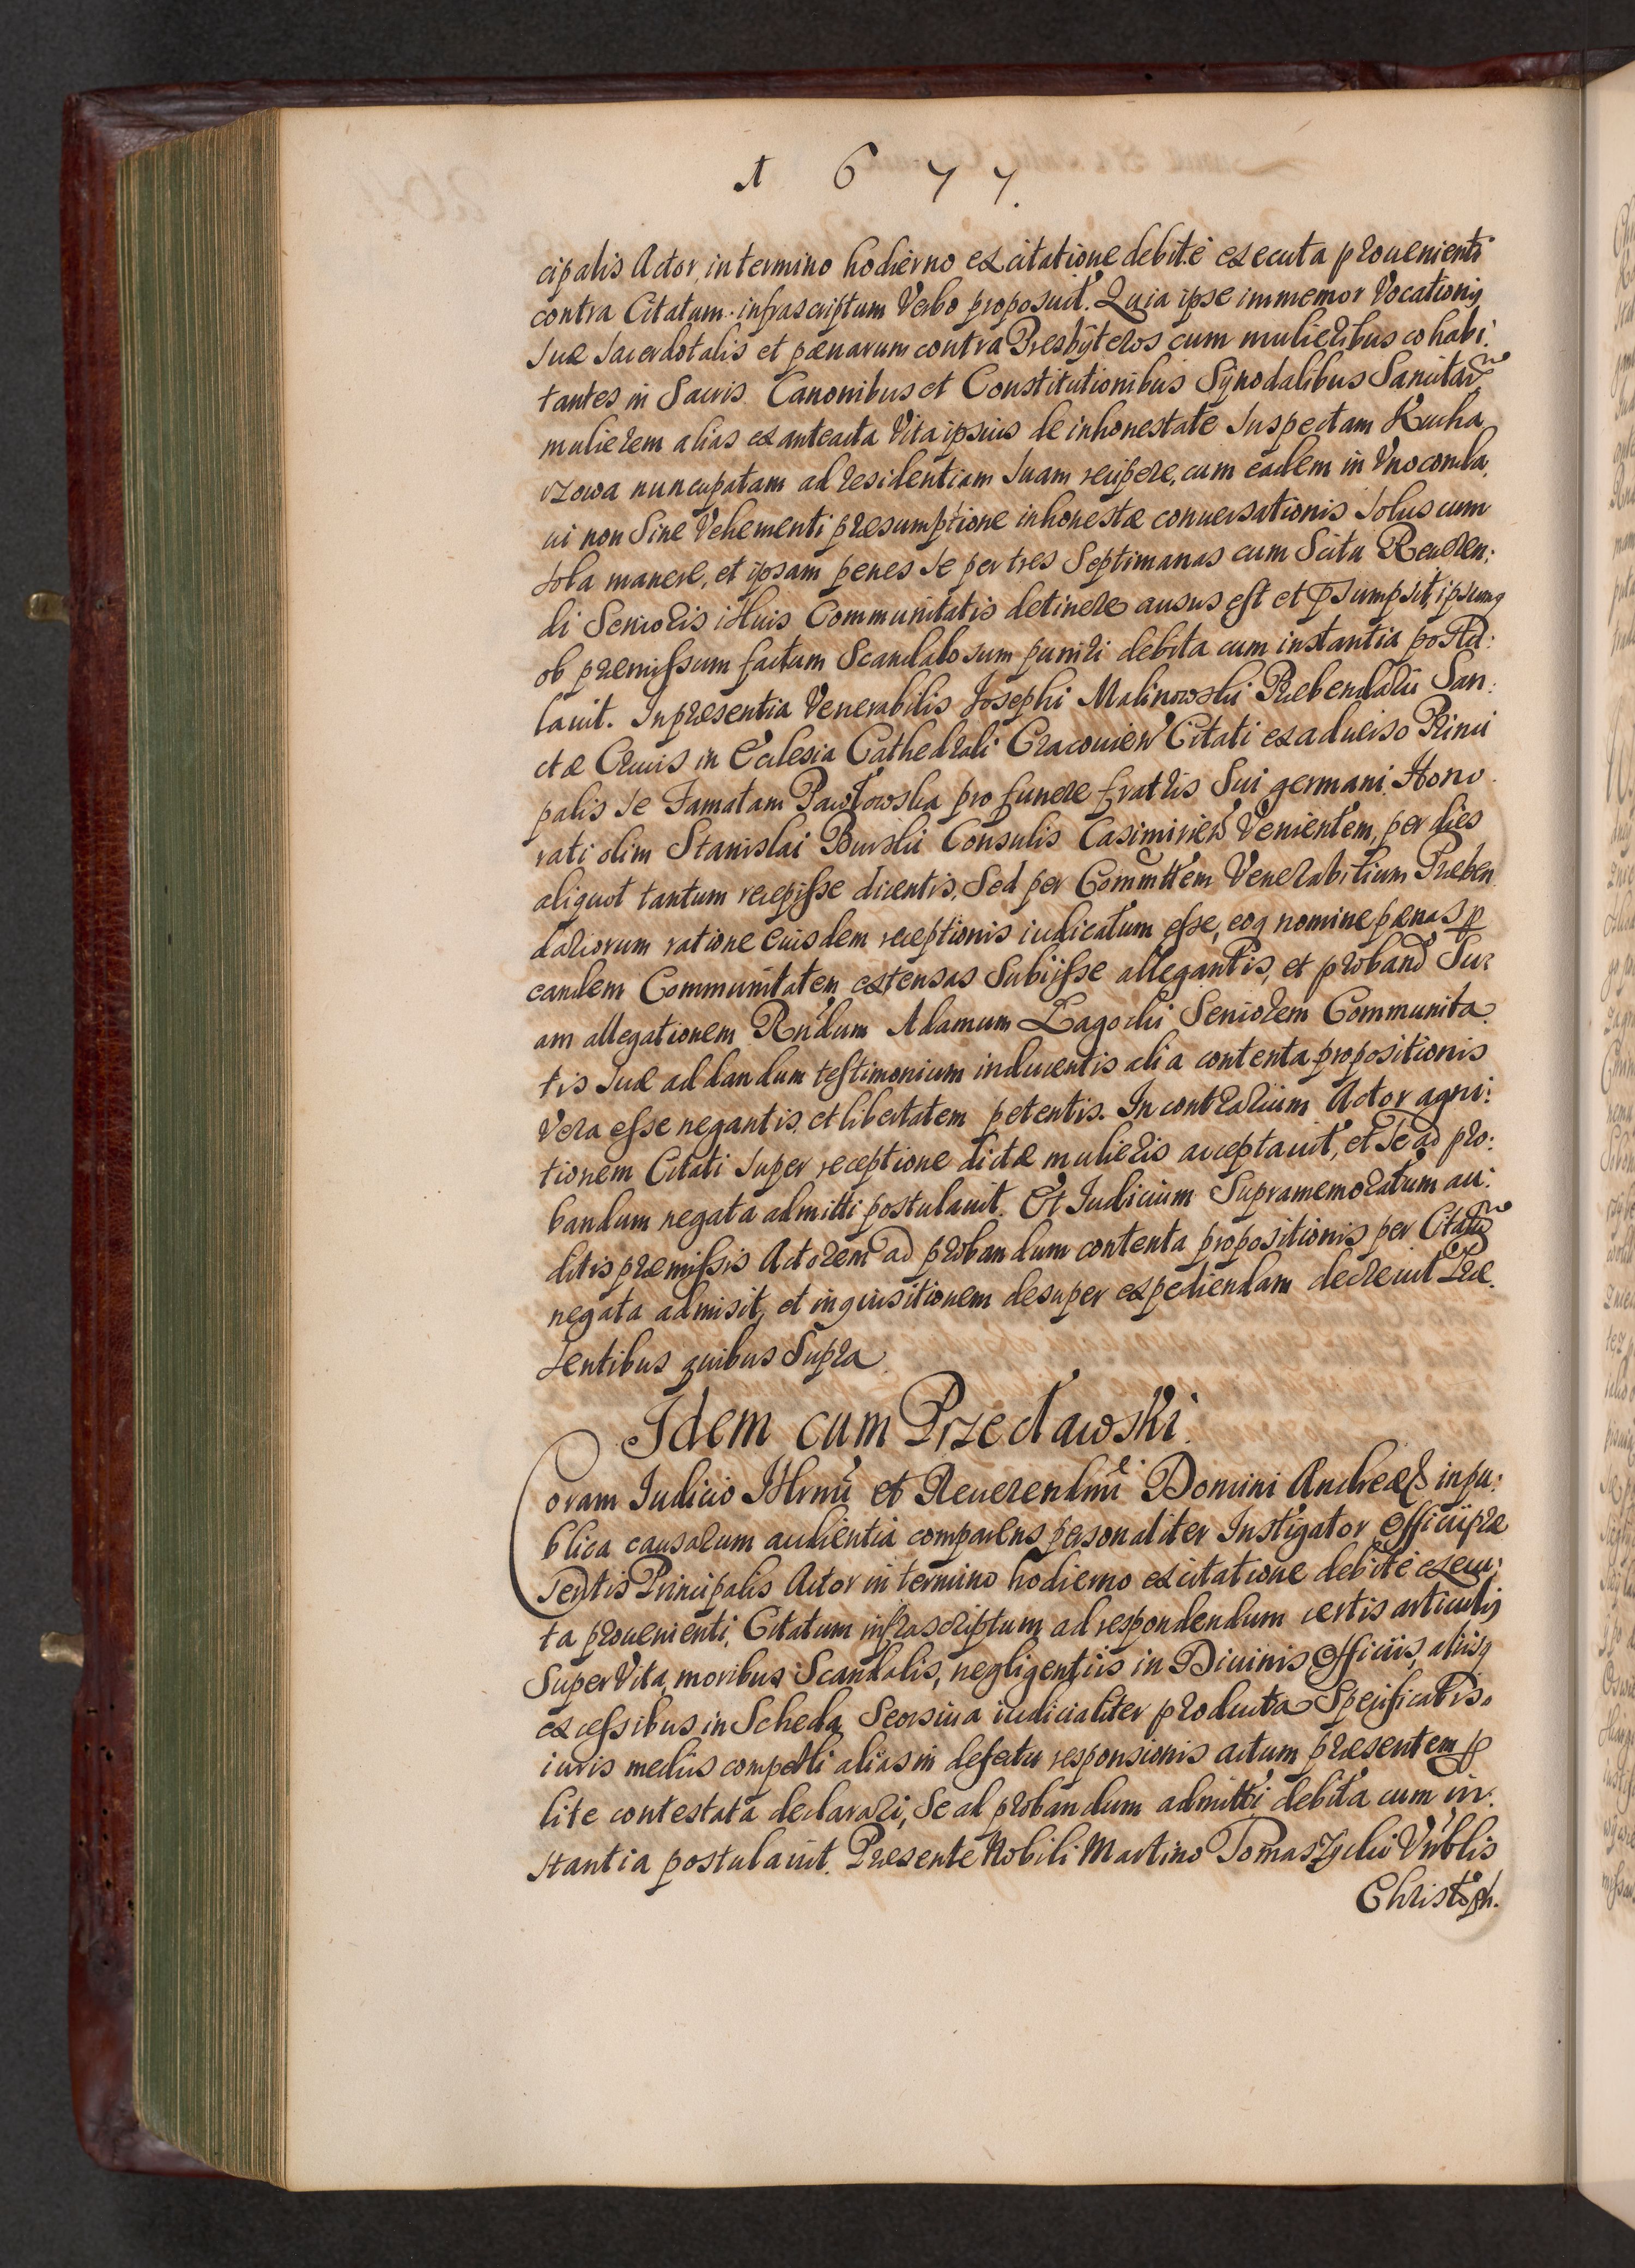 1677.
cipalis Actor, in termino hodierno ex citatione debitè executa prouenienti
contra Citatum infrascriptum Verbo proposuit. Quia ipse immemor Vocationis
suæ sacerdotalis et pænarum contra Presbÿteros cum mulieribus cohabi:
tantes in Sacris Canonibus et Constitutionibus Sÿnodalibus Sancitarũ
mulierem alias ex anteacta Vita ipsius de inhonestate suspectam Kucha
rzowa nuncupatam ad residentiam suam recipere, cum eadem in Vno concla
ui non Sine Vehementi præsumptione inhonestæ conuersationis solus cum
sola manere, et ipsam penes se per tres Septimanas cum Scitu Reueren:
di Senioris illius Communitatis detinere ausus est et præsumpsit, ipsumq
ob præmissum factum Scandalosum puniri debita cum instantia postu:
lauit. In præsentia Venerabilis Josephi Malinowski Præbendarii San:
ctæ Crucis in Ecclesia Cathedrali Cracouien Citati ex aduerso Princi
palis se Famatam Pawłowska pro funere fratris Sui germani Hono
rati olim Stanislai Burski Consulis Casimirien Venientem, per dies
aliquot tantum recepisse dicentis, Sed per Commttem Venerabilium Præben
dariorum ratione eiusdem receptionis iudicatum esse, eoq nomine pænas p
eandem Communitatem extensas Subiisse allegantis, et proband Su
am allegationem Rndum Adamum Łagocki Seniorem Communita
tis suæ ad dandum testimonium inducentis alia contenta propositionis
Vera esse negantis, et libertatem petentis. In contrarium Actor agni:
tionem Citati super receptione dictæ mulieris acceptauit, et se ad pro:
bandum negata admitti postulauit. Et Iudicium Supramemoratum au:
ditis præmissis Actorem ad probandum contenta propositionis per Citatũ
negata admisit, et inquisitionem desuper expediendam decreuit Præ
sentibus quibus Supra.
Idem cum Przecławski.
Coram Iudicio Illrmi et Reuerendmi Domini Andreæ & in pu:
blica causarum audientia comparens personaliter Instigator Officii præ
sentis Principalis Actor in termino hodierno ex citatione debitè execu:
ta prouenienti, Citatum infrascriptum ad respondendum certis articulis
Super Vita, moribus Scandalis, negligentiis in Diuinis Officiis, aliisq
excessibus in Scheda Seorsiua iudicialiter producta Specificatis,
iuris mediis compelli alias in defectu responsionis actum præsentem p
lite contestata declarari, Se ad probandum admitti debita cum in:
stantia postulauit. Præsente Nobili Martino Tomaszycki Vnblis
Christoph.